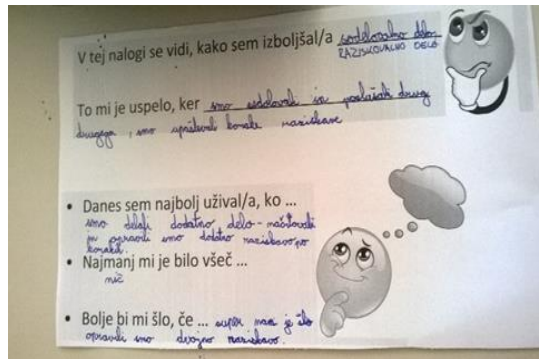 V tej nalogi se vidi, kako sem izboljšal/a sodelovalno delo
RAZISKOVALNO DELO
To mi je uspelo, ker smo sodelovali in poslušali drug
drugega, smo upoštevali korake raziskave
• Danes sem najbolj užival/a, ko ...
smo delali dodatno delo - načrtovali
in opravili smo dodatno raziskavo po
korakih.
• Najmanj mi je bilo všeč ...
nič
• Bolje bi mi šlo, če ... super nam je šlo
opravili smo dvojno raziskavo.